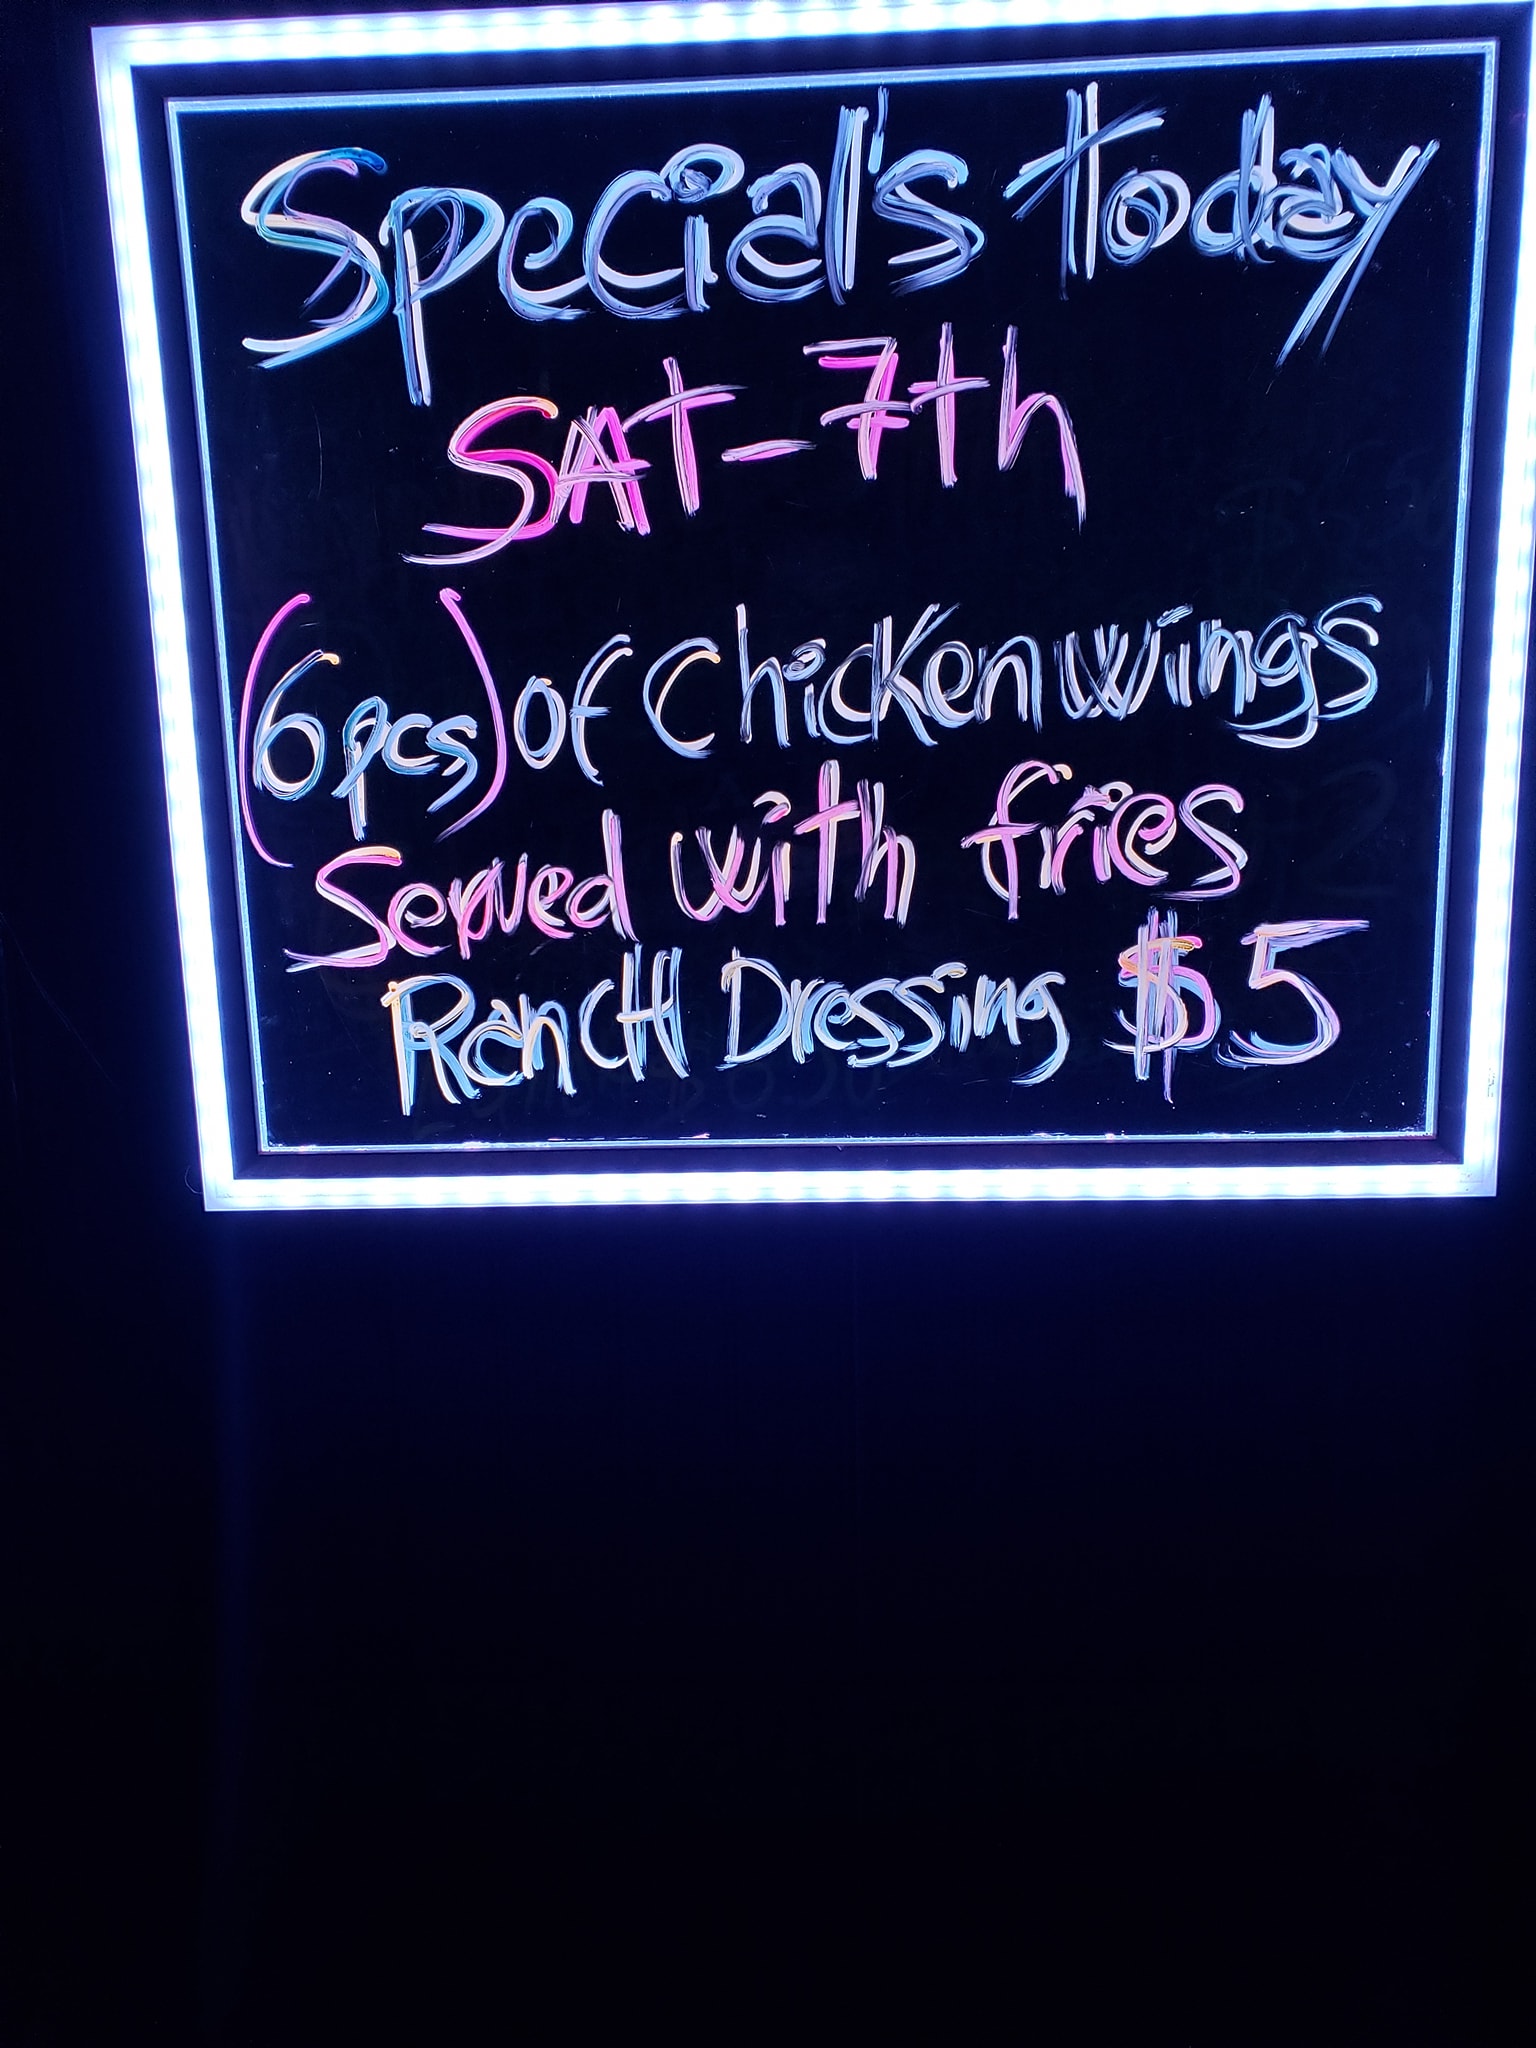 Special's today
SAT-7th
(6pcs) of Chicken wings
Served with fries
RanCH Dressing $5